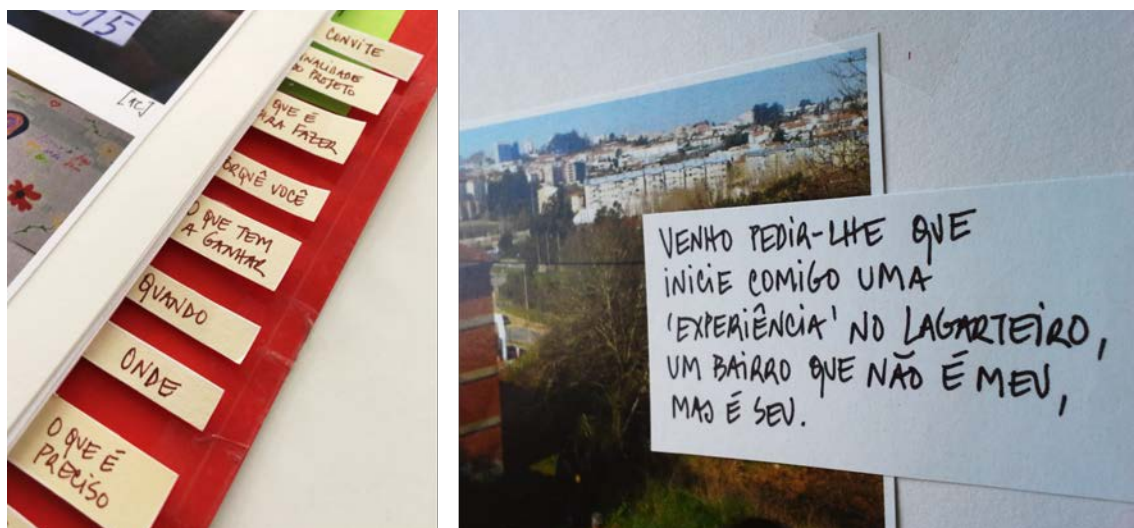 [AC]
CONVITE
NALIDADE
DO PROJETO
QUE É
ARA FAZER
ORQUÊ VOCÊ
O QUE TEM
A GANHAR
QUANDO
ONDE
O QUE É
PRECISO
VENHO PEDIR-LHE QUE
INICIE COMIGO UMA
'EXPERIÊNCIA' NO LAGARTEIRO,
UM BAIRRO QUE NÃO É MEU,
MAS É SEU.